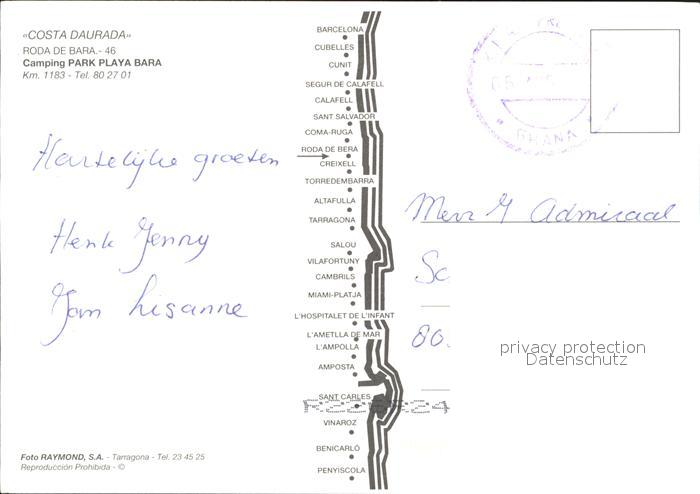 «COSTA DAURADA»
RODA DE BARA.- 46
Camping PARK PLAYA BARA
Km. 1183 - Tel. 80 27 01
Hartelijke groeten
Henk Jenny
Jan Lisanne
Foto RAYMOND, S.A. - Tarragona - Tel. 23 45 25
Reproducción Prohibida - ©
BARCELONA
CUBELLES
CUNIT
SEGUR DE CALAFELL
CALAFELL
SANT SALVADOR
COMA-RUGA
RODA DE BERA
CREIXELL
TORREDEMBARRA
ALTAFULLA
TARRAGONA
SALOU
VILAFORTUNY
CAMBRILS
MIAMI-PLATJA
L'HOSPITALET DE L'INFANT
L'AMETLLA DE MAR
L'AMPOLLA
AMPOSTA
SANT CARLES
VINAROZ
BENICARLÓ
PENYISCOLA
Admiraal
80
privacy protection
Datenschutz